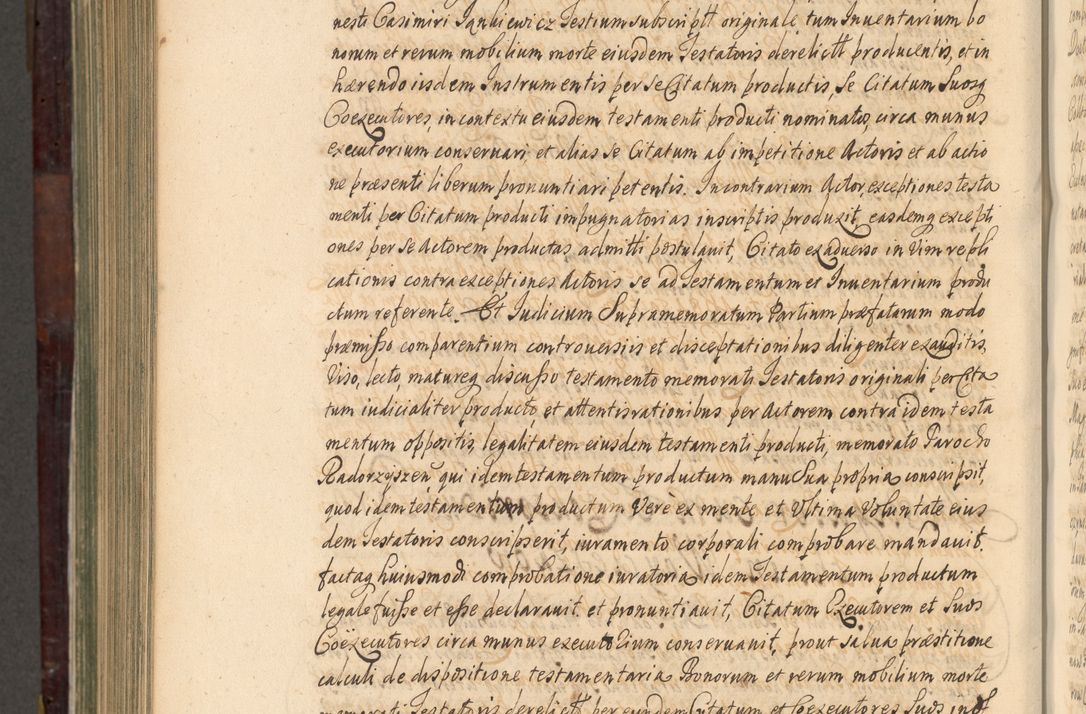 nesti Casimiri Jankiewicz Testium subscriptt originale tum Inuentarium bo
norum et rerum mobilium morte eiusdem Testatoris derelictt producentis, et in
hærendo iisdem Instrumentis per se Citatum productis, se Citatum Suosq
Coexecutores, in contextu eiusdem testamenti producti nominatos, circa munus
executorium conseruari, et alias se Citatum ab impetitione Actoris et ab actio
ne præsenti liberum pronuntiari petentis. In contrarium Actor exceptiones testa
menti per Citatum producti impugnatorias inscriptis produxit, easdemq excepti
ones per se Actorem productas admitti postulauit, Citato ex aduerso in Vim repli
cationis contra exceptiones Actoris se ad Testamentum et Inuentarium produ
ctum referente. Et Iudicium Supramemoratum Partium præfatarum modo
præmisso comparentium controuersiis et disceptationibus diligenter exauditis,
Viso, lecto, matureq discusso testamento memorati Testatoris originali per Cita
tum iudicialiter producto, et attentis rationibus per Actorem contra idem testa
mentum oppositis, legalitatem eiusdem testamenti producti, memorato Parocho
Radorzyszen qui idem testamentum productum manu sua propria conscripsit,
quod idem testamentum productum Vere ex mente et Ultima Voluntate eius
dem Testatoris conscripserit, iuramento corporali comprobare mandauit.
factaq huiusmodi comprobatione iuratoria, idem Testamentum productum
legale fuisse et esse declarauit et pronuntiauit, Citatum Executorem et Suos
Coëxecutores circa munus executorium conseruauit, prout salua præstitione
calculi de dispositione testamentaria Bonorum et rerum mobilium morte
memorati Testatoris derelictt per eundem Citatum et Coexecutores Suos